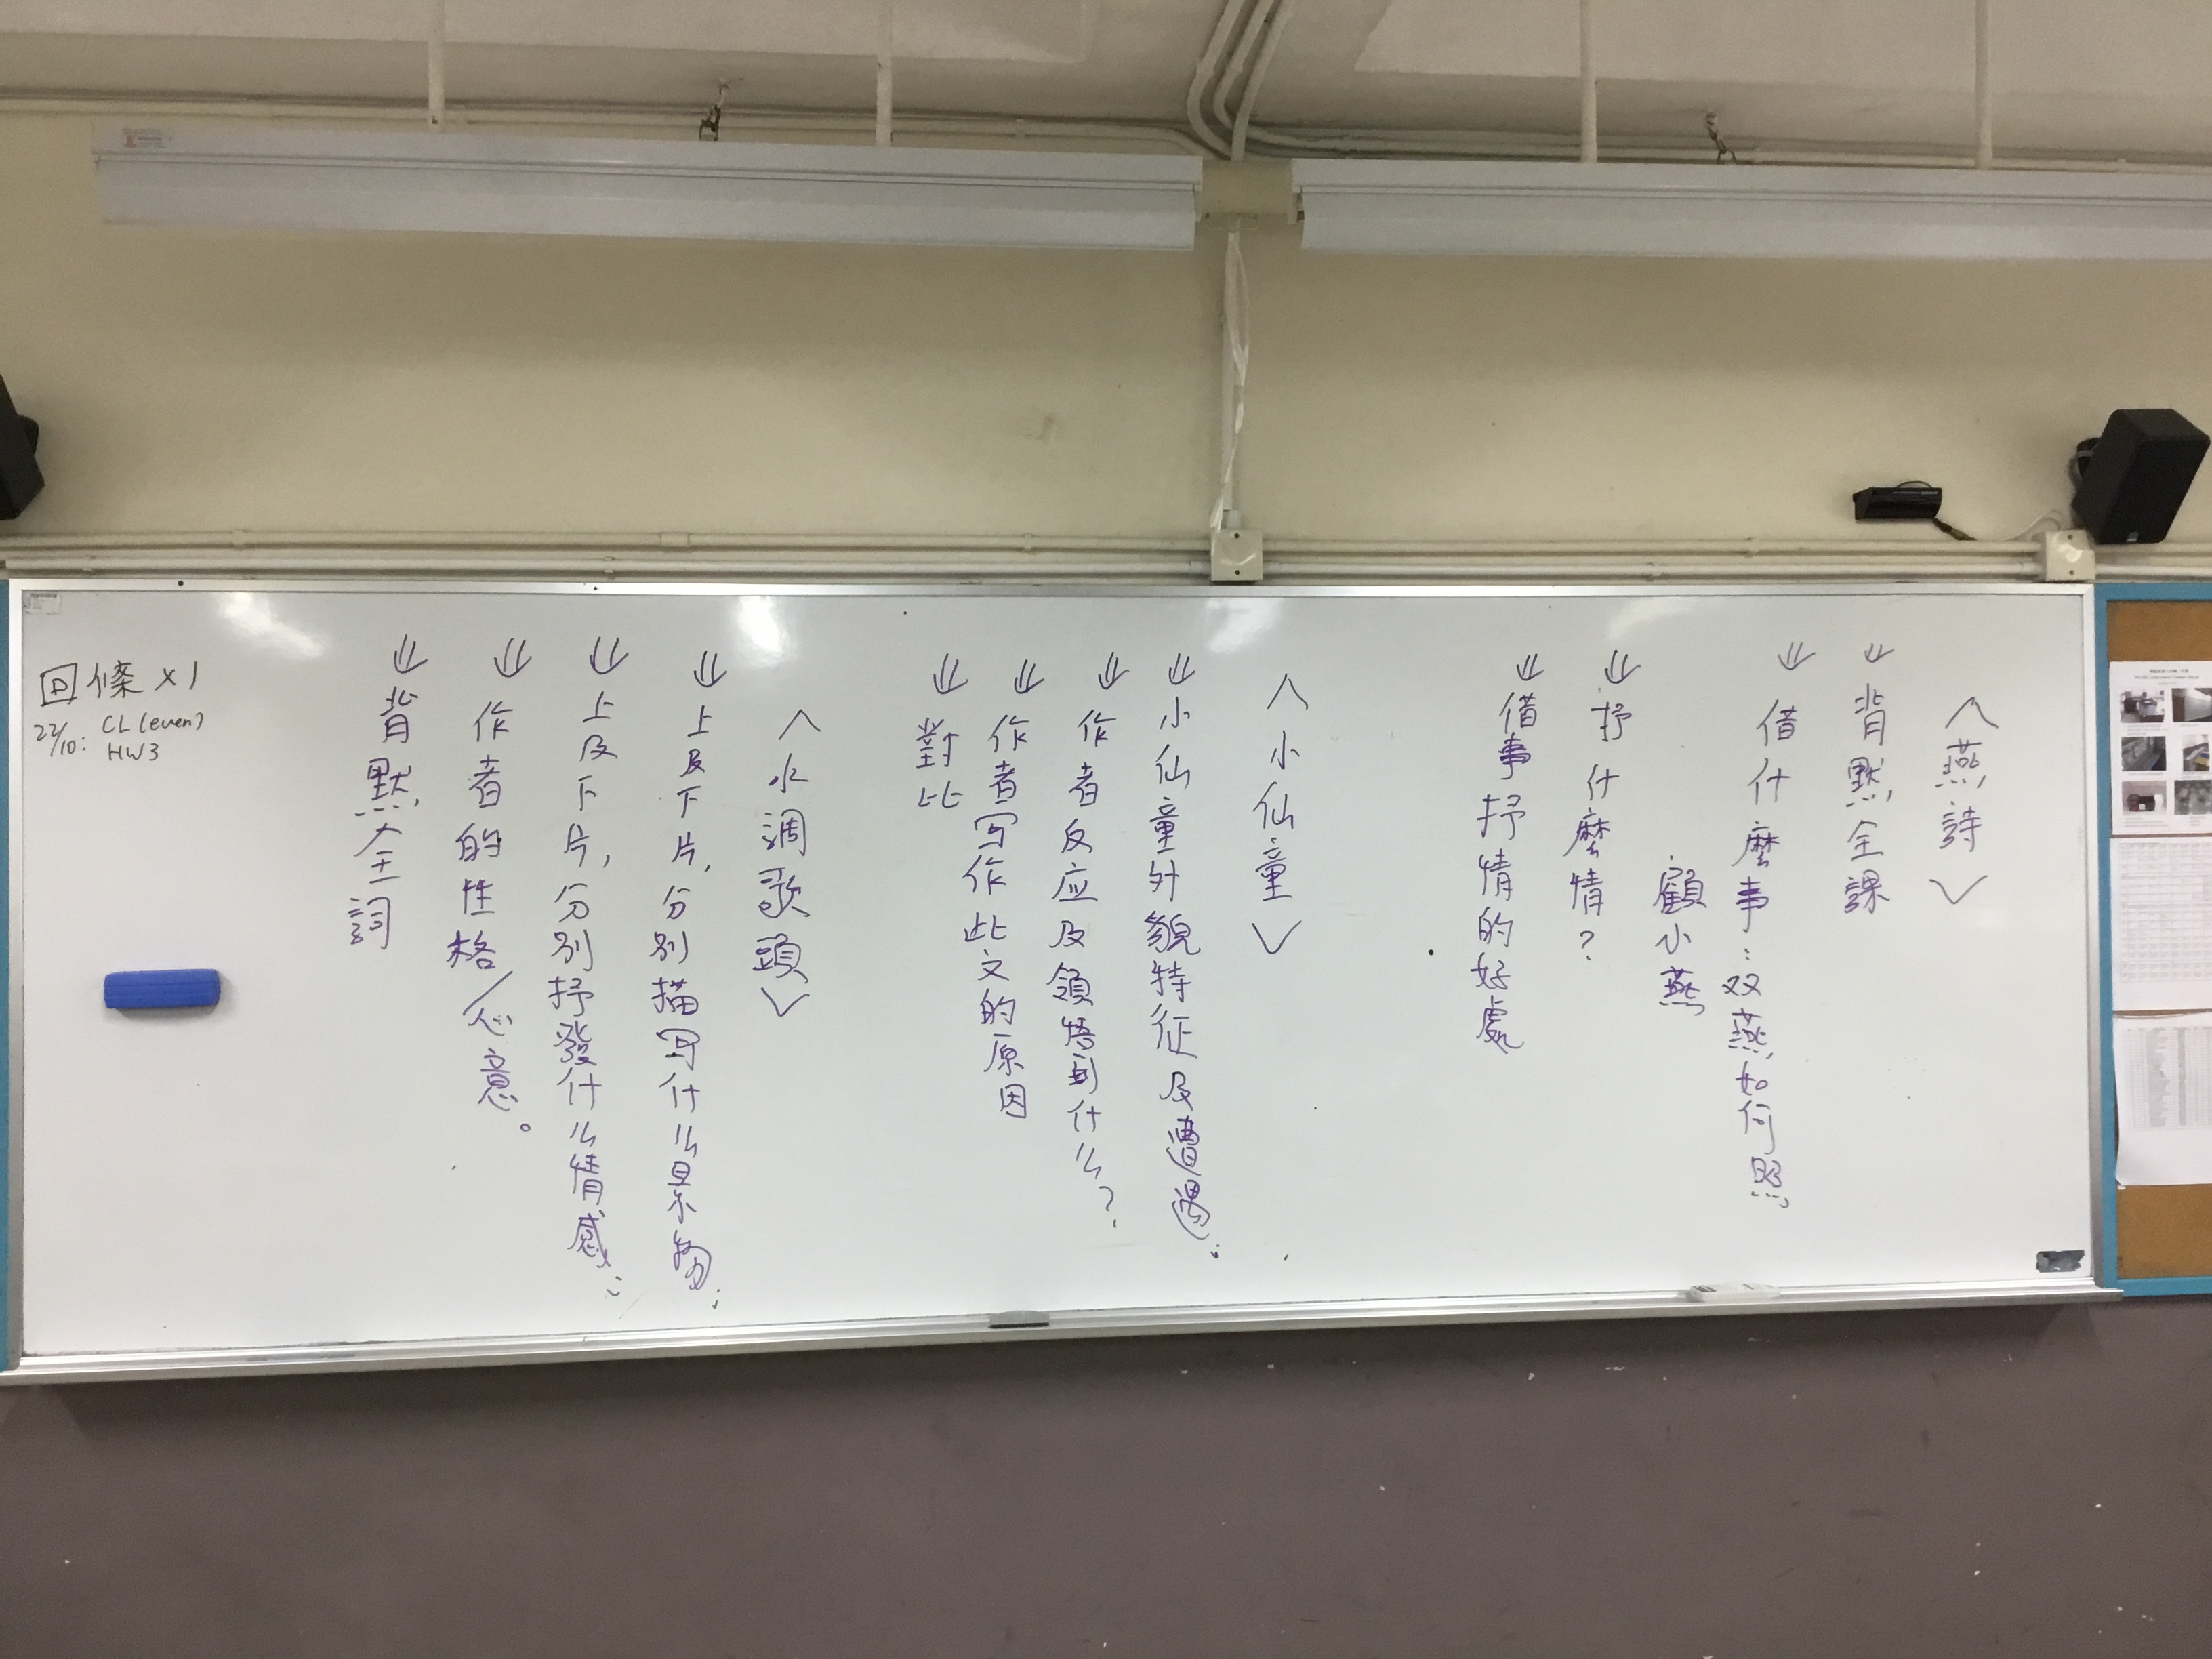 〈燕詩〉
⇓背默全課
⇓借什麼事：双燕如何照
顧小燕
⇓抒什麼情？
⇓借事抒情的好處
〈小仙童〉
⇓小仙童外貌特征及遭遇；
⇓作者反应及領悟到什么？
⇓作者写作此文的原因
⇓對比
〈水調歌頭〉
⇓上及下片，分別描写什么景物；
⇓上及下片，分別抒發什么情感；
⇓作者的性格／心意。
⇓背默全詞
回條 x1
22/10: CL (even)
HW3